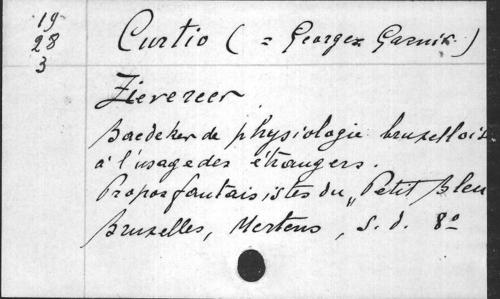 19
28
3
Curtio ( = Georges Garnir )
Zievereer
Baedeker de physiologie bruxelloise
à l'usage des étrangers.
Propos fantaisistes du „ Petit Bleu
Bruxelles, Mertens, s. d. 8º